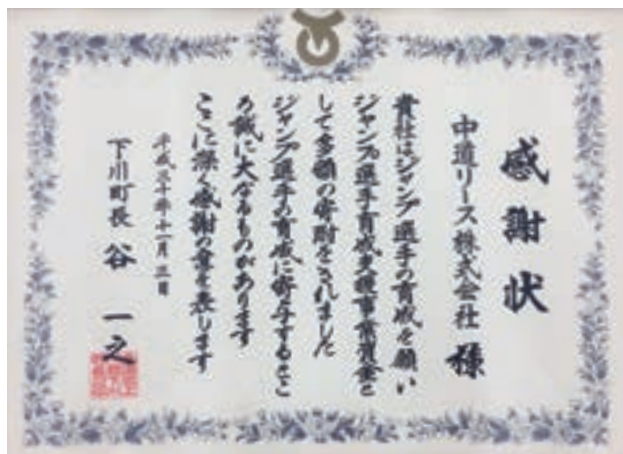 感謝状
中道リース株式会社 様
貴社はジャンプ選手の育成を願い
ジャンプ選手育成支援事業資金と
して多額の寄附をされました
ジャンプ選手の育成に寄与するとこ
ろ誠に大なるものがあります
ここに深く感謝の意を表します
平成三十年十一月三日
下川町長 谷 一之